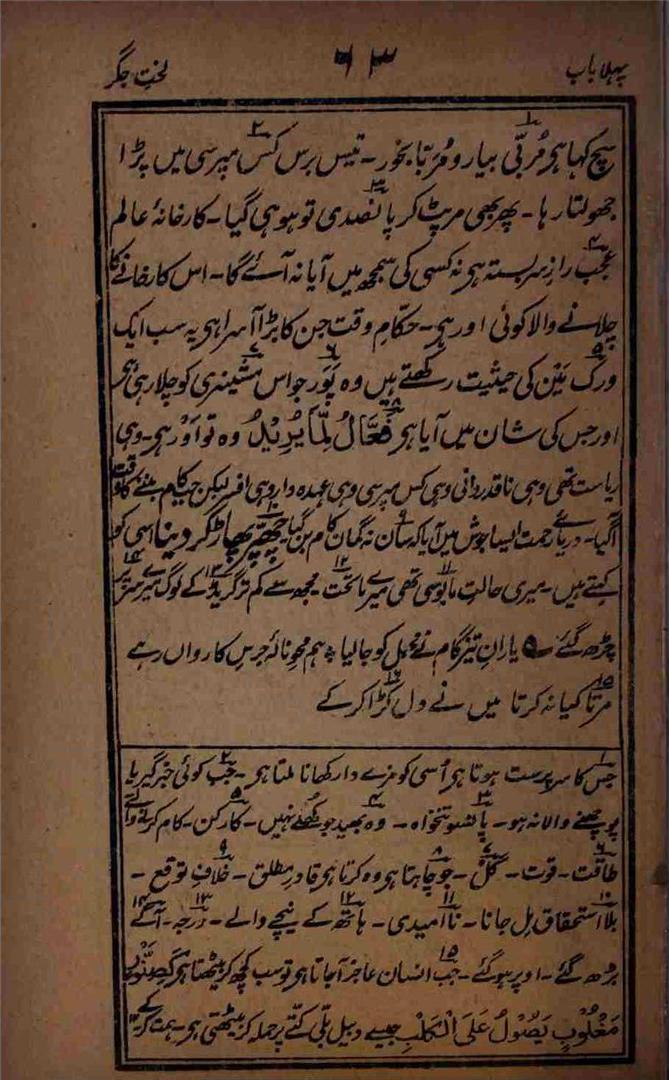 پہلا باب ۶۳ لخت جگر
سچ کہا ہی مُربّی بیار و مُربّا بخور۱۔ تیس برس کس مپرسی۲ میں پڑا
جھولتا رہا۔ پھر بھی مر پٹ کر پانصدی۳ تو ہو ہی گیا۔ کارخانۂ عالم
عجب رازِ سربستہ۴ ہی نہ کسی کی سمجھ میں آیا نہ آئے گا۔ اس کارخانے کا
چلانے والا کوئی اور ہی۔ حکّامِ وقت جن کا بڑا آسرا ہی یہ سب ایک
ورک مَین۵ کی حیثیت رکھتے ہیں وہ پَور۶ جو اس مشینری۷ کو چلا رہی ہی
اور جس کی شان میں آیا ہی فَعَّالٌ لِّمَا یُرِیْدُ۸ وہ تو اَور ہی۔ وہی
ریاست تھی وہی ناقدردانی وہی کس مپرسی وہی عہدہ دار وہی افسر لیکن جب کام بننے کا وقت
آگیا۔ دریائے رحمت ایسا جوش میں آیا کہ سان نہ گمان۹ کام بن گیا۔ چھپّر پھاڑ کر دینا۱۰ اسی کو
کہتے ہیں۔ میری حالت مایوسی۱۱ تھی میرے ماتحت۱۲ مجھ سے کم تر گریڈ۱۳ کے لوگ میرے سر پر
چڑھ گئے۱۴ ؎ یارانِ تیزگام نے محمل کو جا لیا ٭ ہم محوِ نالۂ جرسِ کارواں رہے
مرتا کیا نہ کرتا۱۵ میں نے دل کڑا کر کے۱۶
۱ جس کا سرپرست ہوتا ہی اُسی کو مزے دار کھانا ملتا ہی۔ ۲ جب کوئی خبرگیر یا
پوچھنے والا نہ ہو۔ ۳ پانسو تنخواہ۔ ۴ وہ بھید جو کھُلے نہیں۔ ۵ کارکن۔ کام کرنے والے
۶ طاقت۔ قوت۔ ۷ کَل۔ ۸ جو چاہتا ہی وہ کرتا ہی قادرِ مطلق۔ ۹ خلافِ توقع۔
۱۰ بلا استحقاق مل جانا۔ ۱۱ نا اُمیدی۔ ۱۲ ہاتھ کے نیچے والے۔ ۱۳ درجہ۔ ۱۴ آگے
بڑھ گئے۔ اوپر ہو گئے۔ ۱۵ جب انسان عاجز آجاتا ہی تو سب کچھ کر بیٹھتا ہی کَسِنَّوْرٍ
مَغْلُوْبٍ یَصُوْلُ عَلَی الْکَلْبِ جیسے دبیل بلّی کتّے پر حملہ کر بیٹھتی ہی۔ ہمت کر کے